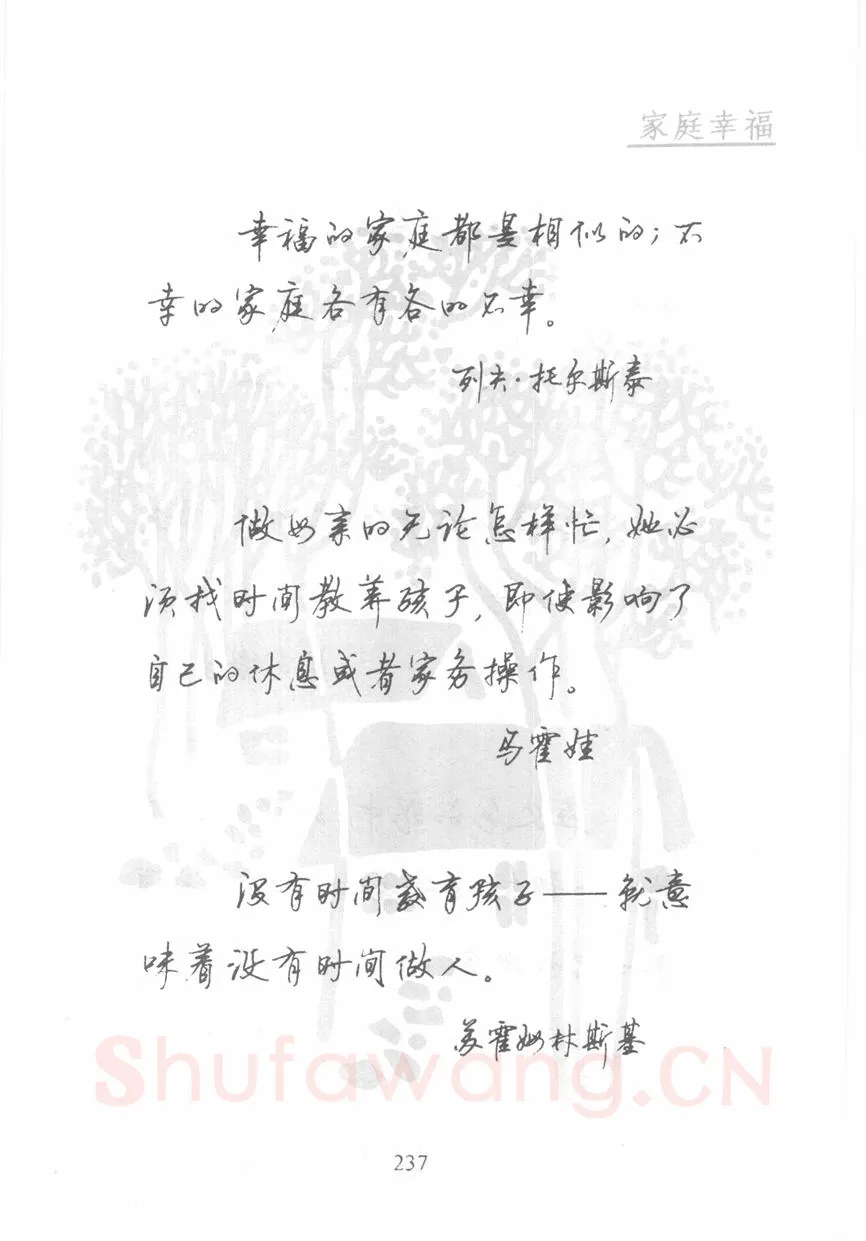 家庭幸福
幸福的家庭都是相似的；不
幸的家庭各有各的不幸。
列夫·托尔斯泰
做母亲的无论怎样忙，她必
须找时间教养孩子，即使影响了
自己的休息或者家务操作。
马霍娃
没有时间教育孩子——就意
味着没有时间做人。
苏霍姆林斯基
Shufawang.CN
237